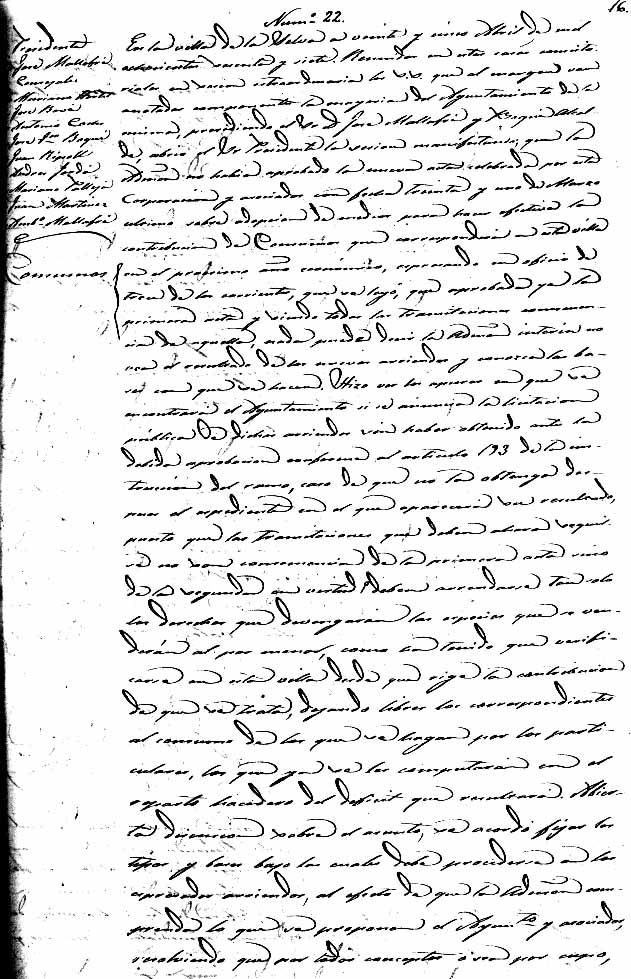 16.
Num.º 22.
Presidente
José Mallafré
Concejales
Mariano
José Boria
Antonio
José J.n Baqué
Juan Ripoll
Andres Jordá
Mariano Pellejá
Juan Martinez
Amb.º Mallafré
Consumos
En la villa de la Selva a veinte y cinco Abril de mil
ochocientos noventa y siete. Reunidos en estas casas consisto-
riales en sesion extraordinaria los S.S. que al margen van
anotados componentes la mayoria del Ayuntamiento de la
misma, presidiendo el Sr. D. José Mallafré y
de abrió el Sr. Presidente la sesion manifestando, que la
Admon no habia aprobado la nueva acta celebrada por esta
Corporacion y asociados con fecha treinta y uno de Marzo
ultimo sobre adopcion de medios para hacer efectiva la
contribucion de Consumos que corresponderá a esta villa
en el proximo año económico, expresando en oficio de
trece de los corrientes, que se leyó, que aprobada ya la
primera acta y siendo todas las tramitaciones consecuen-
cia de aquella, nada puede decir la Admon interin no
vea el resultado de los nuevos arriendos y conozca las ba-
ses con que se hacen. Hizo ver los apuros en que se
encontraria el Ayuntamiento si se anuncia la licitacion
pública de dichos arriendos sin haber obtenido ante la
debida aprobacion conforme al articulo 193 de la ins-
truccion del ramo, caso de que no la obtenga des-
pues el expediente en el que aparecerá su resultado,
puesto que las tramitaciones que deben ahora seguir-
se no son consecuencia de la primera acta sino
de la segunda en virtud deben arrendarse tan solo
los derechos que devengarán las especies que se ven-
derán al por menor, como ha tenido que verifi-
carse en esta villa desde que rige la contribucion
de que se trata, dejando libres los correspondientes
al consumo de los que se hagan por los parti-
culares, los que ya se les computarán con el
reparto hacedero del deficit que resultará. Abier-
ta discusion sobre el asunto, se acordó fijar los
tipos y bases bajo las cuales debe procederse a los
expresados arriendos, al efecto de que la Admon com-
prenda lo que se proponen el Ayunt.to y asociados,
resolviendo que por todos conceptos ó sea por cupo,